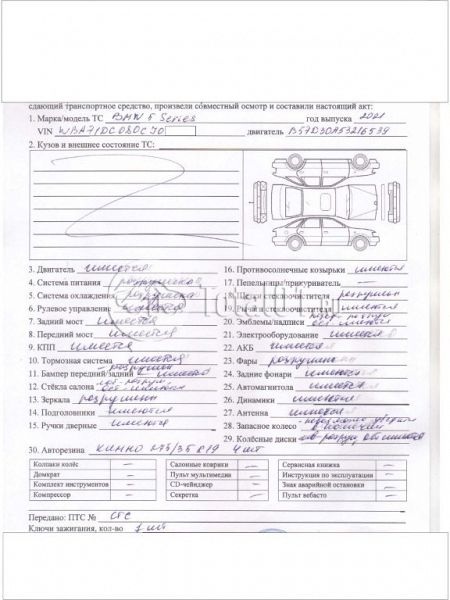 сдающий транспортное средство, произвели совместный осмотр и составили настоящий акт:
1. Марка/модель ТС BMW 5 Series год выпуска 2021
VIN двигатель
2. Кузов и внешнее состояние ТС:
3. Двигатель имеется
4. Система питания разрушена
5. Система охлаждения разрушена
6. Рулевое управление имеется
7. Задний мост имеется
8. Передний мост имеется
9. КПП имеется
10. Тормозная система имеется
11. Бампер передний/задний - разрушен имеется
12. Стёкла салона
13. Зеркала разрушены
14. Подголовники имеются
15. Ручки дверные имеются
16. Противосолнечные козырьки имеются
17. Пепельницы/прикуриватель —
стеклоочистителя разрушен
стеклоочистителя имеется
20. Эмблемы/надписи
21. Электрооборудование имеется
22. АКБ имеется
23. Фары разрушены
24. Задние фонари имеются
25. Автомагнитола имеется
26. Динамики имеются
27. Антенна имеется
28. Запасное колесо
29. Колёсные диски
30. Авторезина R19 4 шт
Колпаки колёс — Салонные коврики — Сервисная книжка —
Домкрат — Пульт мультимедиа — Инструкция по эксплуатации —
Комплект инструментов — CD-чейнджер — Знак аварийной остановки —
Компрессор — Секретка — Пульт вебасто —
Передано: ПТС № СТС
Ключи зажигания, кол-во 1 шт